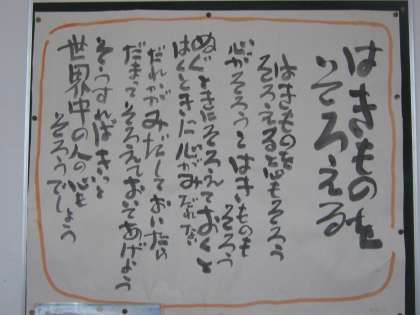 はきものを
そろえる
はきものを
そろえると心もそろう
心がそろうとはきものも
そろう
ぬぐときにそろえておくと
はくときに心がみだれない
だれかがみだしておいたら
だまってそろえておいてあげよう
そうすればきっと
世界中の人の心も
そろうでしょう